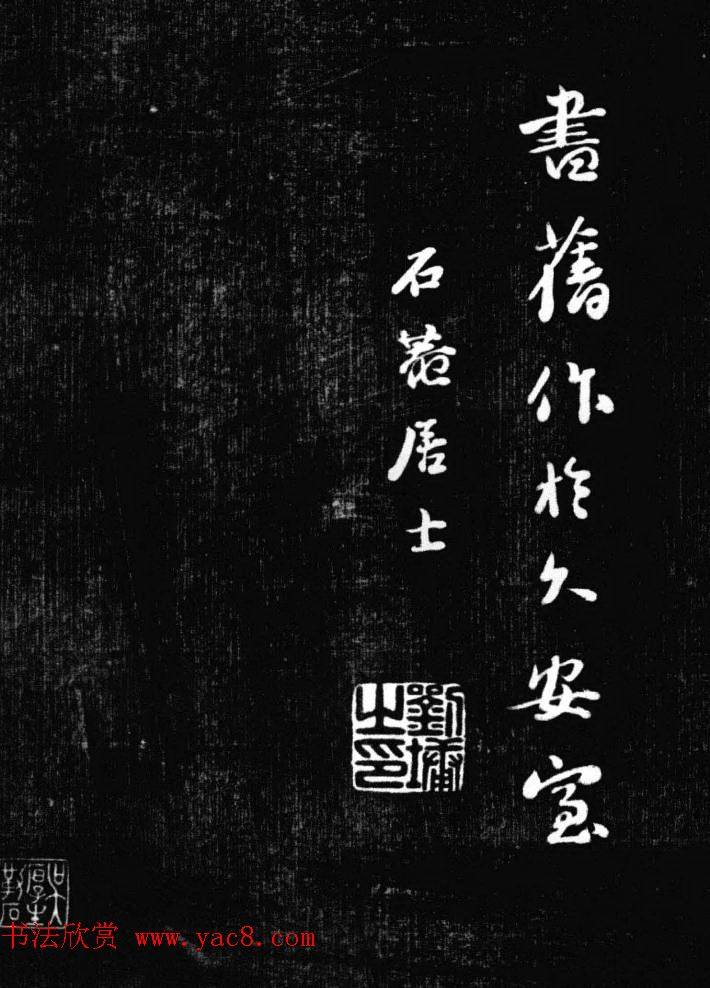 書舊作於久安室
石菴居士
劉墉之印
勒石
书法欣赏 www.yac8.com